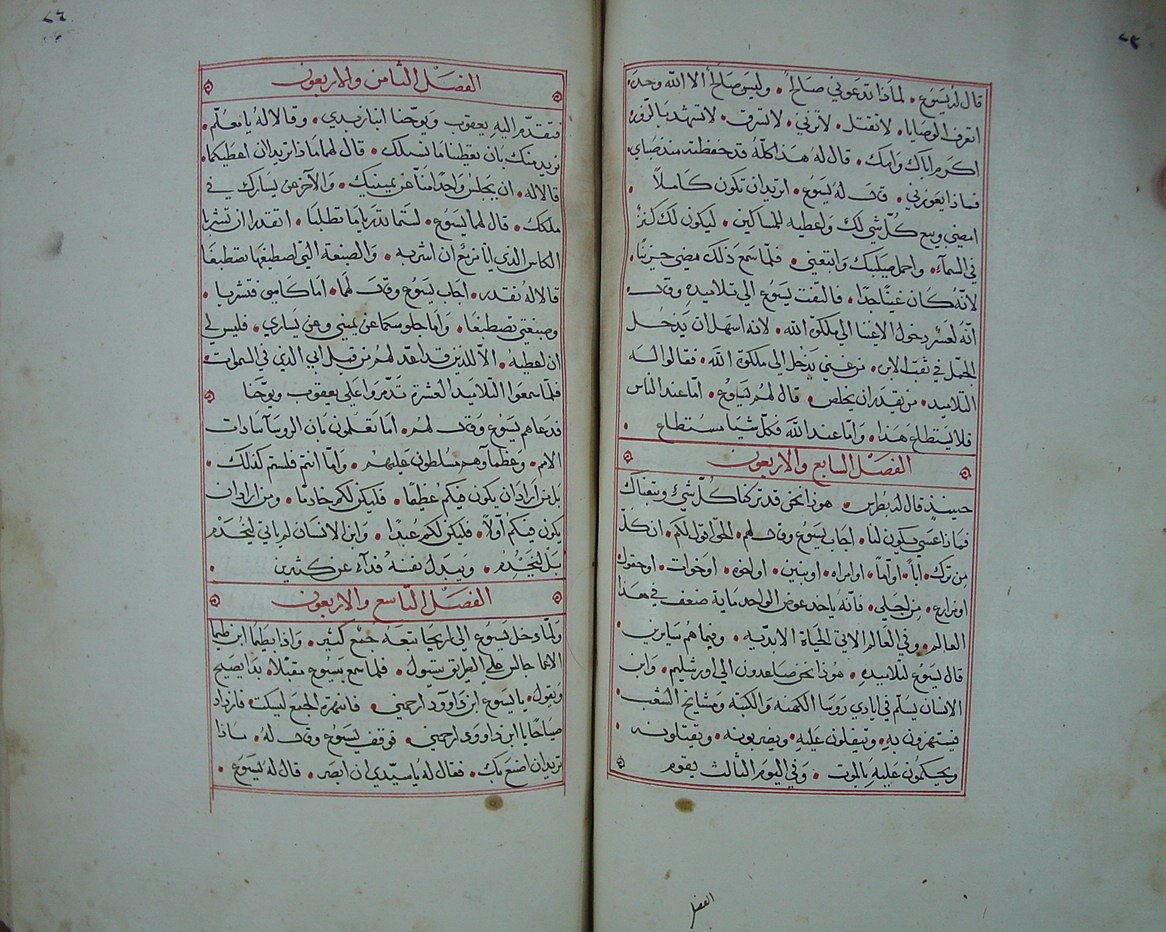 قال له يسوع. لماذا تدعوني صالحاً. وليس صالحاً الا الله وحده
اتعرف الوصايا. لا تقتل. لا تزني. لا تسرق. لا تشهد بالزور.
اكرم اباك وامك. قال له هذا كله قد حفظته منذ صباي
فماذا يعوزني. قال له يسوع. اتريد ان تكون كاملاً.
امضي وبيع كل شي لك واعطيه للمساكين. ليكون لك كنز
في السمآء. واحمل صليبك واتبعني. فلما سمع ذلك مضى حزينا.
لانه كان غنيا جدا. فالتفت يسوع الى تلاميذه وقال
انه لعسر دخول الاغنيا الى ملكوة الله. لانه اسهل ان يدخل
الجمل في ثقب الابرة. من غني يدخل الى ملكوة الله. فقالوا له
التلاميذ. من يقدر ان يخلص. قال لهم يسوع. اما عند الناس
فلا يستطاع هذا. واما عند الله فكل شيا مستطاع.
الفصل السابع والاربعون
حينيذ قال له بطرس. هوذا نحن قد تركنا كل شي وتبعناك
فماذا عسى يكون لنا. اجاب يسوع وقال لهم. الحق اقول لكم. ان كل
من ترك. اباً. او اماً. او امراه. او بنين. او اخوه. او خوات. او حقول
او مزارع. من اجلي. فانه ياخد عوض الواحد ماية ضعف في هذا
العالم. وفي العالم الاتي الحياة الابديه. وفيما هم سايرين
قال يسوع لتلاميذه. هوذا نحن صاعدون الى اورشليم. وابن
الانسان يسلم في ايادي روسا الكهنه والكتبه ومشايخ الشعب
فيستهزون به. ويتفلون عليه. ويضربونه. ويقتلونه
ويحكمون عليه بالموت. وفي اليوم الثالث يقوم
الفصل
الفصل الثامن والاربعون
فتقدم اليه يعقوب ويوحنا ابنا زبدي. وقالا له يا معلم.
نريد منك بان تعطينا ما نسلك. قال لهما ماذا تريدان اعطيكما
قالا له. ان يجلس واحداً منا عن يمينك. والاخر عن يسارك في
ملكك. قال لهما يسوع. لستما تدريا ما تطلبا. اتقدرا ان تشربا
الكاس الذي انا مزمع ان اشربه. والصبغة التي اصطبغها تصطبغا
قالا له نقدر. اجاب يسوع وقال لهما. اما كاسي فتشربا.
وصبغتي تصطبغا. واما جلوسكما عن يميني وعن يساري. فليس لي
ان اعطيه. الا للذين قد اعد لهم من قبل ابي الذي في السموات
فلما سمعوا التلاميذ العشرة تذمروا على يعقوب ويوحنا
فدعاهم يسوع وقال لهم. اما تعلمون بان الروسآ سادات
الامم. وعظمآوهم مسلطون عليهم. واما انتم فلستم كذلك.
بل من اراد ان يكون فيكم عظيما. فليكن لكم خادما. ومن اراد ان
يكون فيكم اولاً. فليكن لكم عبدا. وابن الانسان لم ياتي ليُخدم
بل ليَخدم. ويبدل نفسه فدآء عن كثيرين.
الفصل التاسع والاربعون
ولما دخل يسوع الى اريحا تبعه جمع كثير. واذا بطيما ابن طيما
الاعما جالس على الطريق يتسول. فلما سمع يسوع مقبلا. بدا يصيح
ويقول. يا يسوع ابن داوود ارحمني. فانتهره الجمع ليسكت. فازداد
صياحا يا ابن داوود ارحمني. فوقف يسوع وقال له. ماذا
تريد ان اصنع بك. فقال له يا سيدي ان ابصر. قال له يسوع.